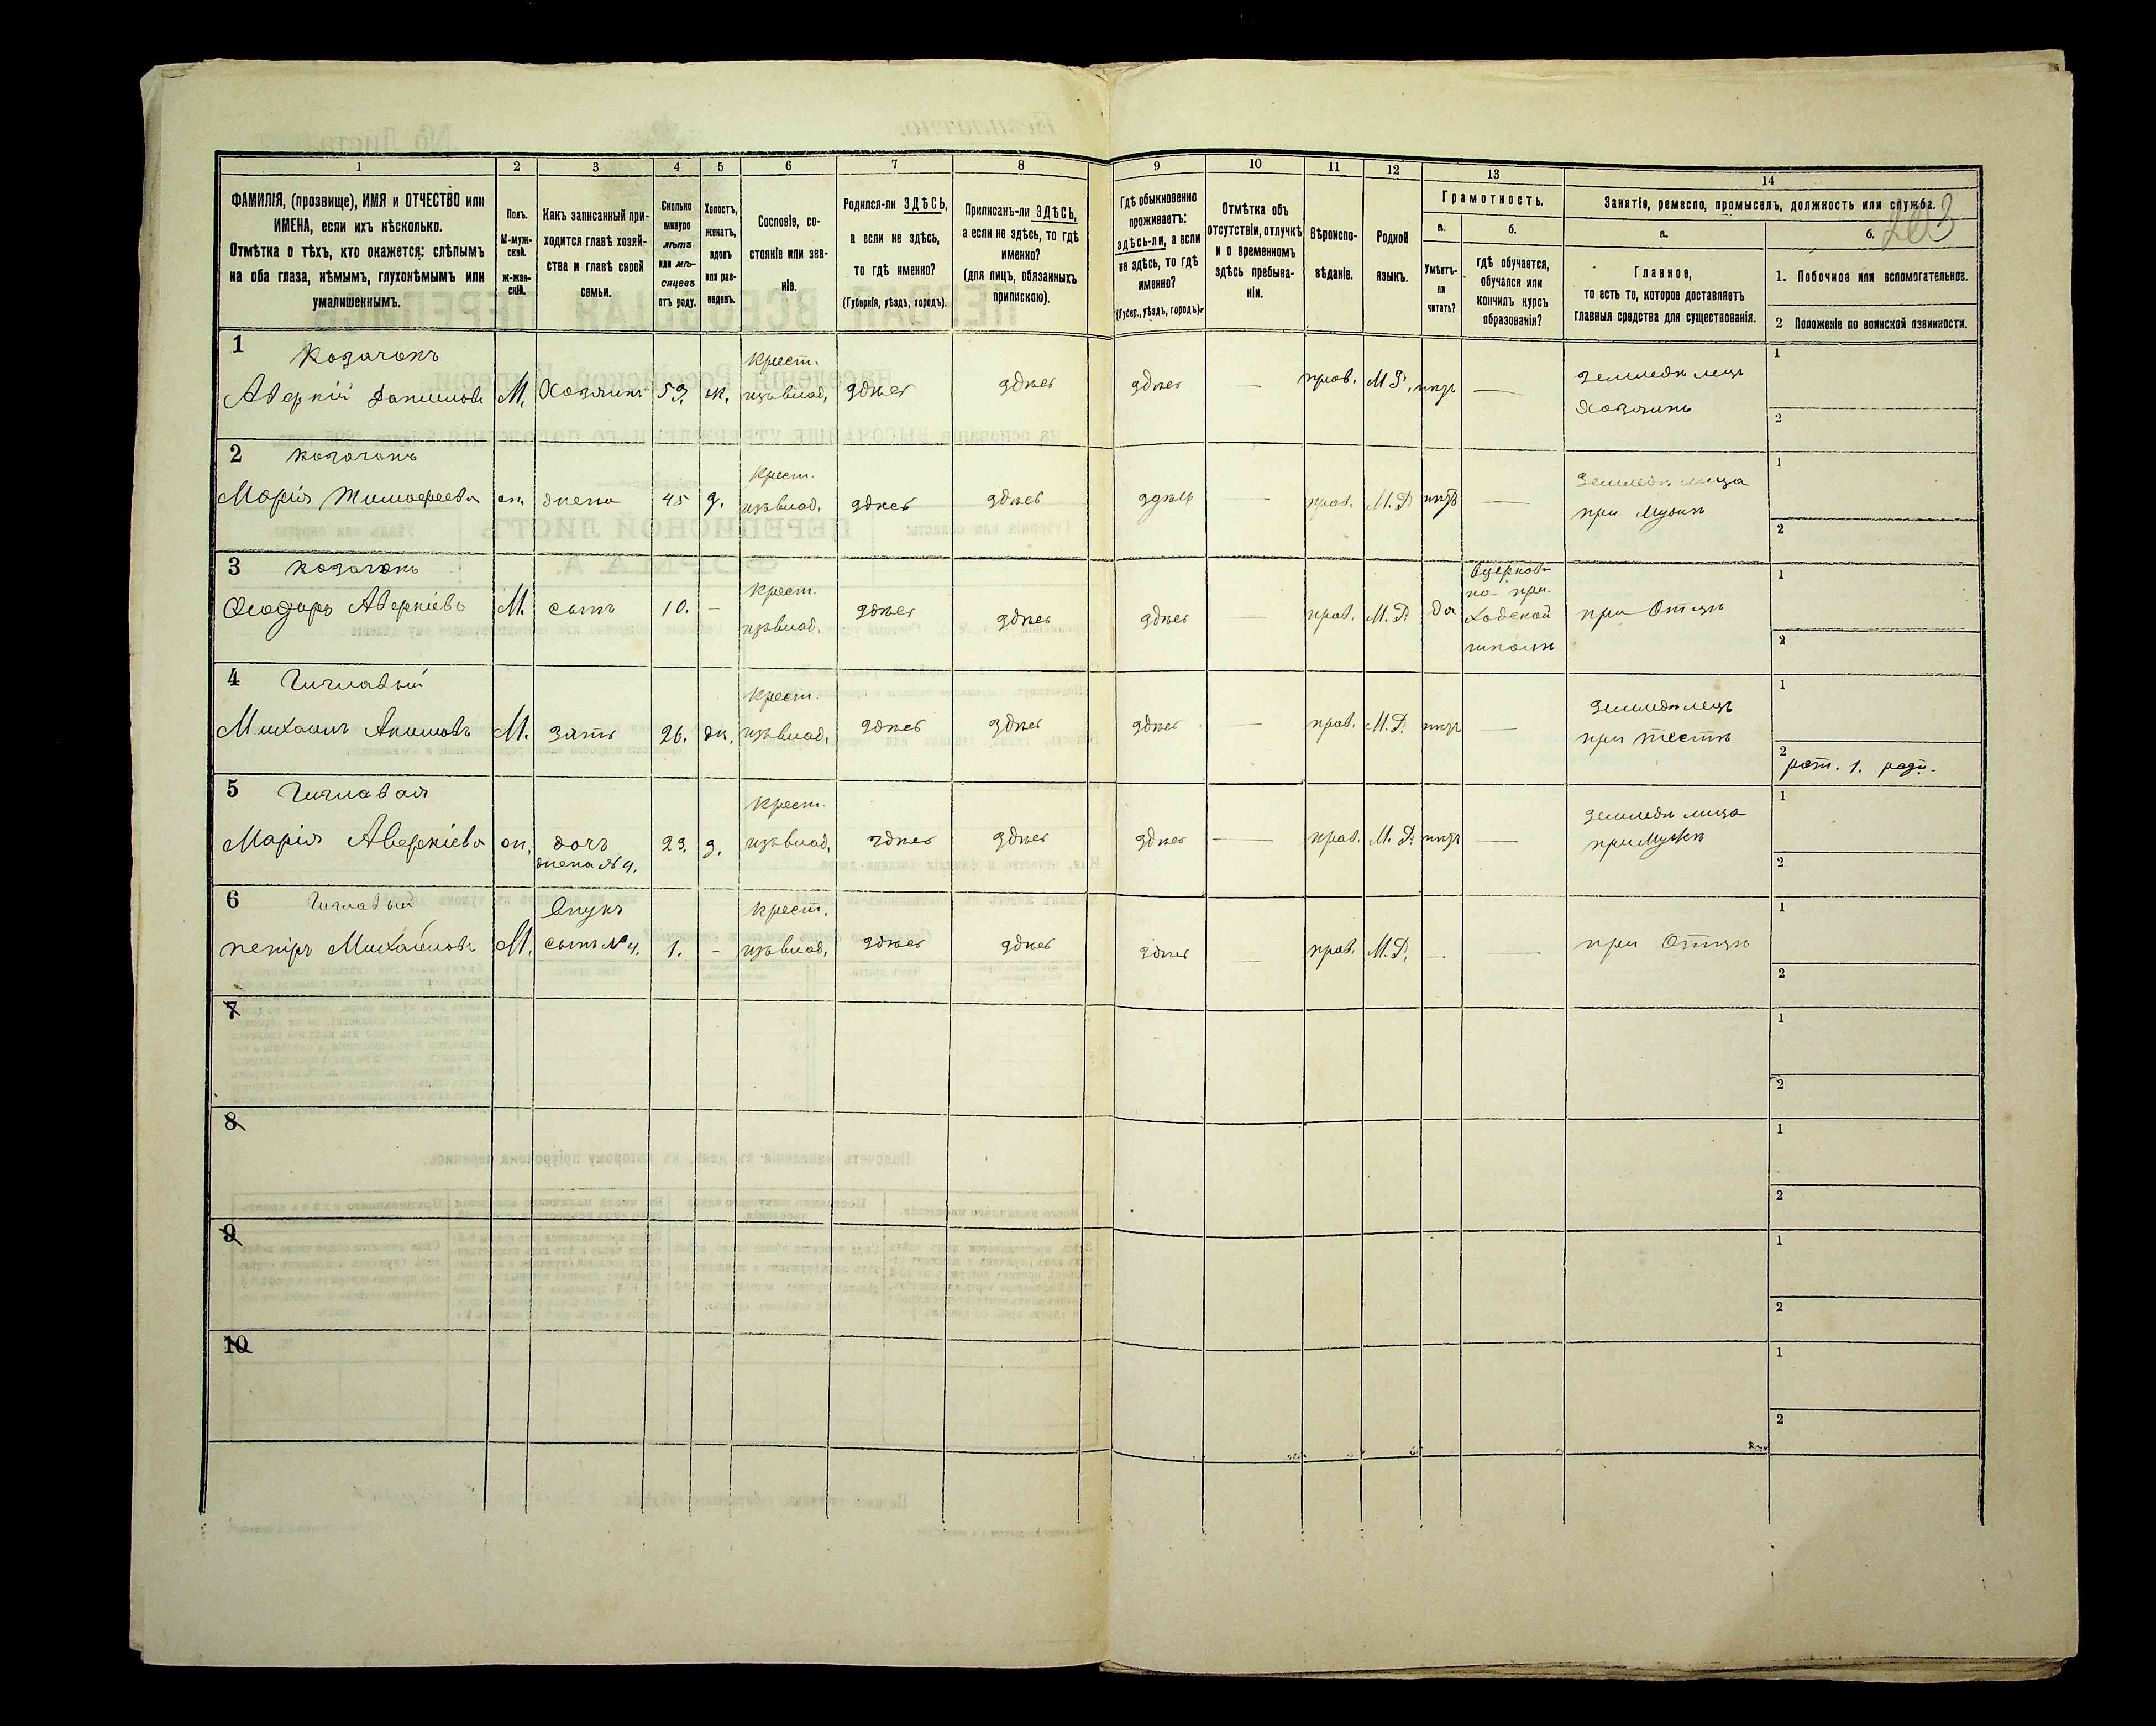 1 2 3 4 5 6 7 8 9 10 11 12 13 14
ФАМИЛІЯ, (прозвище), ИМЯ и ОТЧЕСТВО или
ИМЕНА, если ихъ нѣсколько.
Отмѣтка о тѣхъ, кто окажется: слѣпымъ
на оба глаза, нѣмымъ, глухонѣмымъ или
умалишеннымъ.
Полъ.
М-муж-
ской.
Ж-жен-
скій.
Какъ записанный при-
ходится главѣ хозяй-
ства и главѣ своей
семьи.
Сколько
минуло
лѣтъ
или мѣ-
сяцевъ
отъ роду.
Холостъ,
женатъ,
вдовъ
или раз-
веденъ.
Сословіе, со-
стояніе или зва-
ніе.
Родился-ли ЗДѢСЬ,
а если не здѣсь,
то гдѣ именно?
(Губернія, уѣздъ, городъ).
Приписанъ-ли ЗДѢСЬ,
а если не здѣсь, то гдѣ
именно?
(для лицъ, обязанныхъ
припискою).
Гдѣ обыкновенно
проживаетъ:
здѣсь-ли, а если
не здѣсь, то гдѣ
именно?
(Губер., уѣздъ, городъ).
Отмѣтка объ
отсутствіи, отлучкѣ
и о временномъ
здѣсь пребыва-
ніи.
Вѣроиспо-
вѣданіе.
Родной
языкъ.
Грамотность.
а.
Умѣетъ-
ли
читать?
б.
гдѣ обучается,
обучался или
кончилъ курсъ
образованія?
Занятіе, ремесло, промыселъ, должность или служба.
203
а.
Главное,
то есть то, которое доставляетъ
главныя средства для существованія.
б.
1. Побочное или вспомогательное.
2 Положеніе по воинской повинности.
1 Козачокъ
Аверкій Даниловъ М. Хозяинъ 53. ж. Крест.
изъ влад. здѣсь здѣсь здѣсь — прав. М.Р. нѣтъ — земледѣлецъ
Хозяинъ
1
2
2 Козачокъ
Марія Тимофеева ж. жена 45 з. Крест.
изъ влад. здѣсь здѣсь здѣсь — прав. М.Р. нѣтъ — земледѣлица
при Мужѣ
1
2
3 Козачокъ
Ѳеодоръ Аверкіевъ М. сынъ 10. – Крест.
изъ влад. здѣсь здѣсь здѣсь — прав. М.Р. да
Вцерков-
но-при-
ходской
школѣ
при Отцѣ
1
2
4
Михаилъ Акимовъ М. зять 26. ж. Крест.
изъ влад. здѣсь здѣсь здѣсь — прав. М.Р. нѣтъ — земледѣлецъ
при тестѣ
1
2
5
Марія Аверкіева ж. дочь
жена №4. 23. з. Крест.
изъ влад. здѣсь здѣсь здѣсь — прав. М.Р. нѣтъ — земледѣлица
при Мужѣ
1
2
6
Петръ Михайловъ М. Внукъ
сынъ №4. 1. – Крест.
изъ влад. здѣсь здѣсь здѣсь — прав. М.Р. — — при Отцѣ
1
2
7
1
2
8
1
2
9
1
2
10
1
2